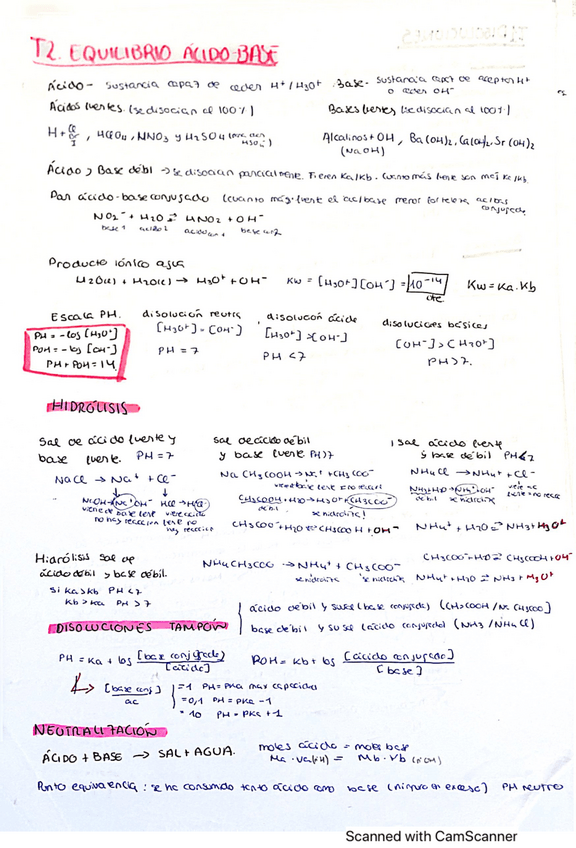 T2. EQUILIBRIO ÁCIDO-BASE
Ácido - sustancia capaz de ceder H⁺/H₃O⁺. Base - sustancia capaz de aceptar H⁺ o ceder OH⁻
Ácidos fuertes (se disocian al 100%)
Bases fuertes (se disocian al 100%)
HClO₄, HNO₃ y H₂SO₄
Alcalinos + OH, Ba(OH)₂, Ca(OH)₂, Sr(OH)₂
(NaOH)
Ácido y Base débil → se disocian parcialmente. Tienen Ka/Kb. Cuanto más fuerte son mas Ka/Kb.
Par ácido-base conjugado (cuanto más fuerte el ac/base menor fortaleza ac/bas conjugada
NO₂⁻ + H₂O ⇄ HNO₂ + OH⁻
base 1 ácido 2 base 2
Producto iónico agua
H₂O(l) + H₂O(l) → H₃O⁺ + OH⁻ Kw = [H₃O⁺][OH⁻] = 10⁻¹⁴ Kw = Ka·Kb
cte
Escala PH. disolución neutra disolución ácida disoluciones básicas
PH = -log [H₃O⁺] [H₃O⁺] = [OH⁻] [H₃O⁺] > [OH⁻] [OH⁻] > [H₃O⁺]
POH = -log [OH⁻] PH = 7 PH < 7 PH > 7.
PH + POH = 14
HIDRÓLISIS
Sal de ácido fuerte y base fuerte. PH = 7
NaCl → Na⁺ + Cl⁻
NaOH → Na⁺ OH⁻ HCl → H⁺ Cl⁻
viene de base fuerte no hay reacción
sal de ácido débil y base fuerte PH > 7
NaCH₃COOH → Na⁺ + CH₃COO⁻
CH₃COOH + H₂O → H₃O⁺ + CH₃COO⁻
débil se hidroliza!
CH₃COO⁻ + H₂O ⇄ CH₃COOH + OH⁻
sal ácido fuerte y base débil PH < 7
NH₄Cl → NH₄⁺ + Cl⁻
NH₃ + H₂O → NH₄⁺ OH⁻
débil se hidroliza
NH₄⁺ + H₂O ⇄ NH₃ + H₃O⁺
Hidrólisis sal de ácido débil y base débil.
Si Ka > Kb PH < 7
Kb > Ka PH > 7
NH₄CH₃COO → NH₄⁺ + CH₃COO⁻
se hidroliza se hidroliza
CH₃COO⁻ + H₂O ⇄ CH₃COOH + OH⁻
NH₄⁺ + H₂O ⇄ NH₃ + H₃O⁺
DISOLUCIONES TAMPÓN
ácido débil y su sal (base conjugada) (CH₃COOH / NaCH₃COO)
base débil y su sal (ácido conjugado) (NH₃ / NH₄Cl)
PH = Ka + log [base conjugada]/[ácido] POH = Kb + log [ácido conjugado]/[base]
[base conj]/ac = 1 PH = PKa max capacidad
= 0,1 PH = PKa - 1
= 10 PH = PKa + 1
NEUTRALIZACIÓN
ÁCIDO + BASE → SAL + AGUA.
moles ácido = moles base
Ma · Va = Mb · Vb
Punto equivalencia: se ha consumido tanto ácido como base (ninguno en exceso) PH NEUTRO
Scanned with CamScanner